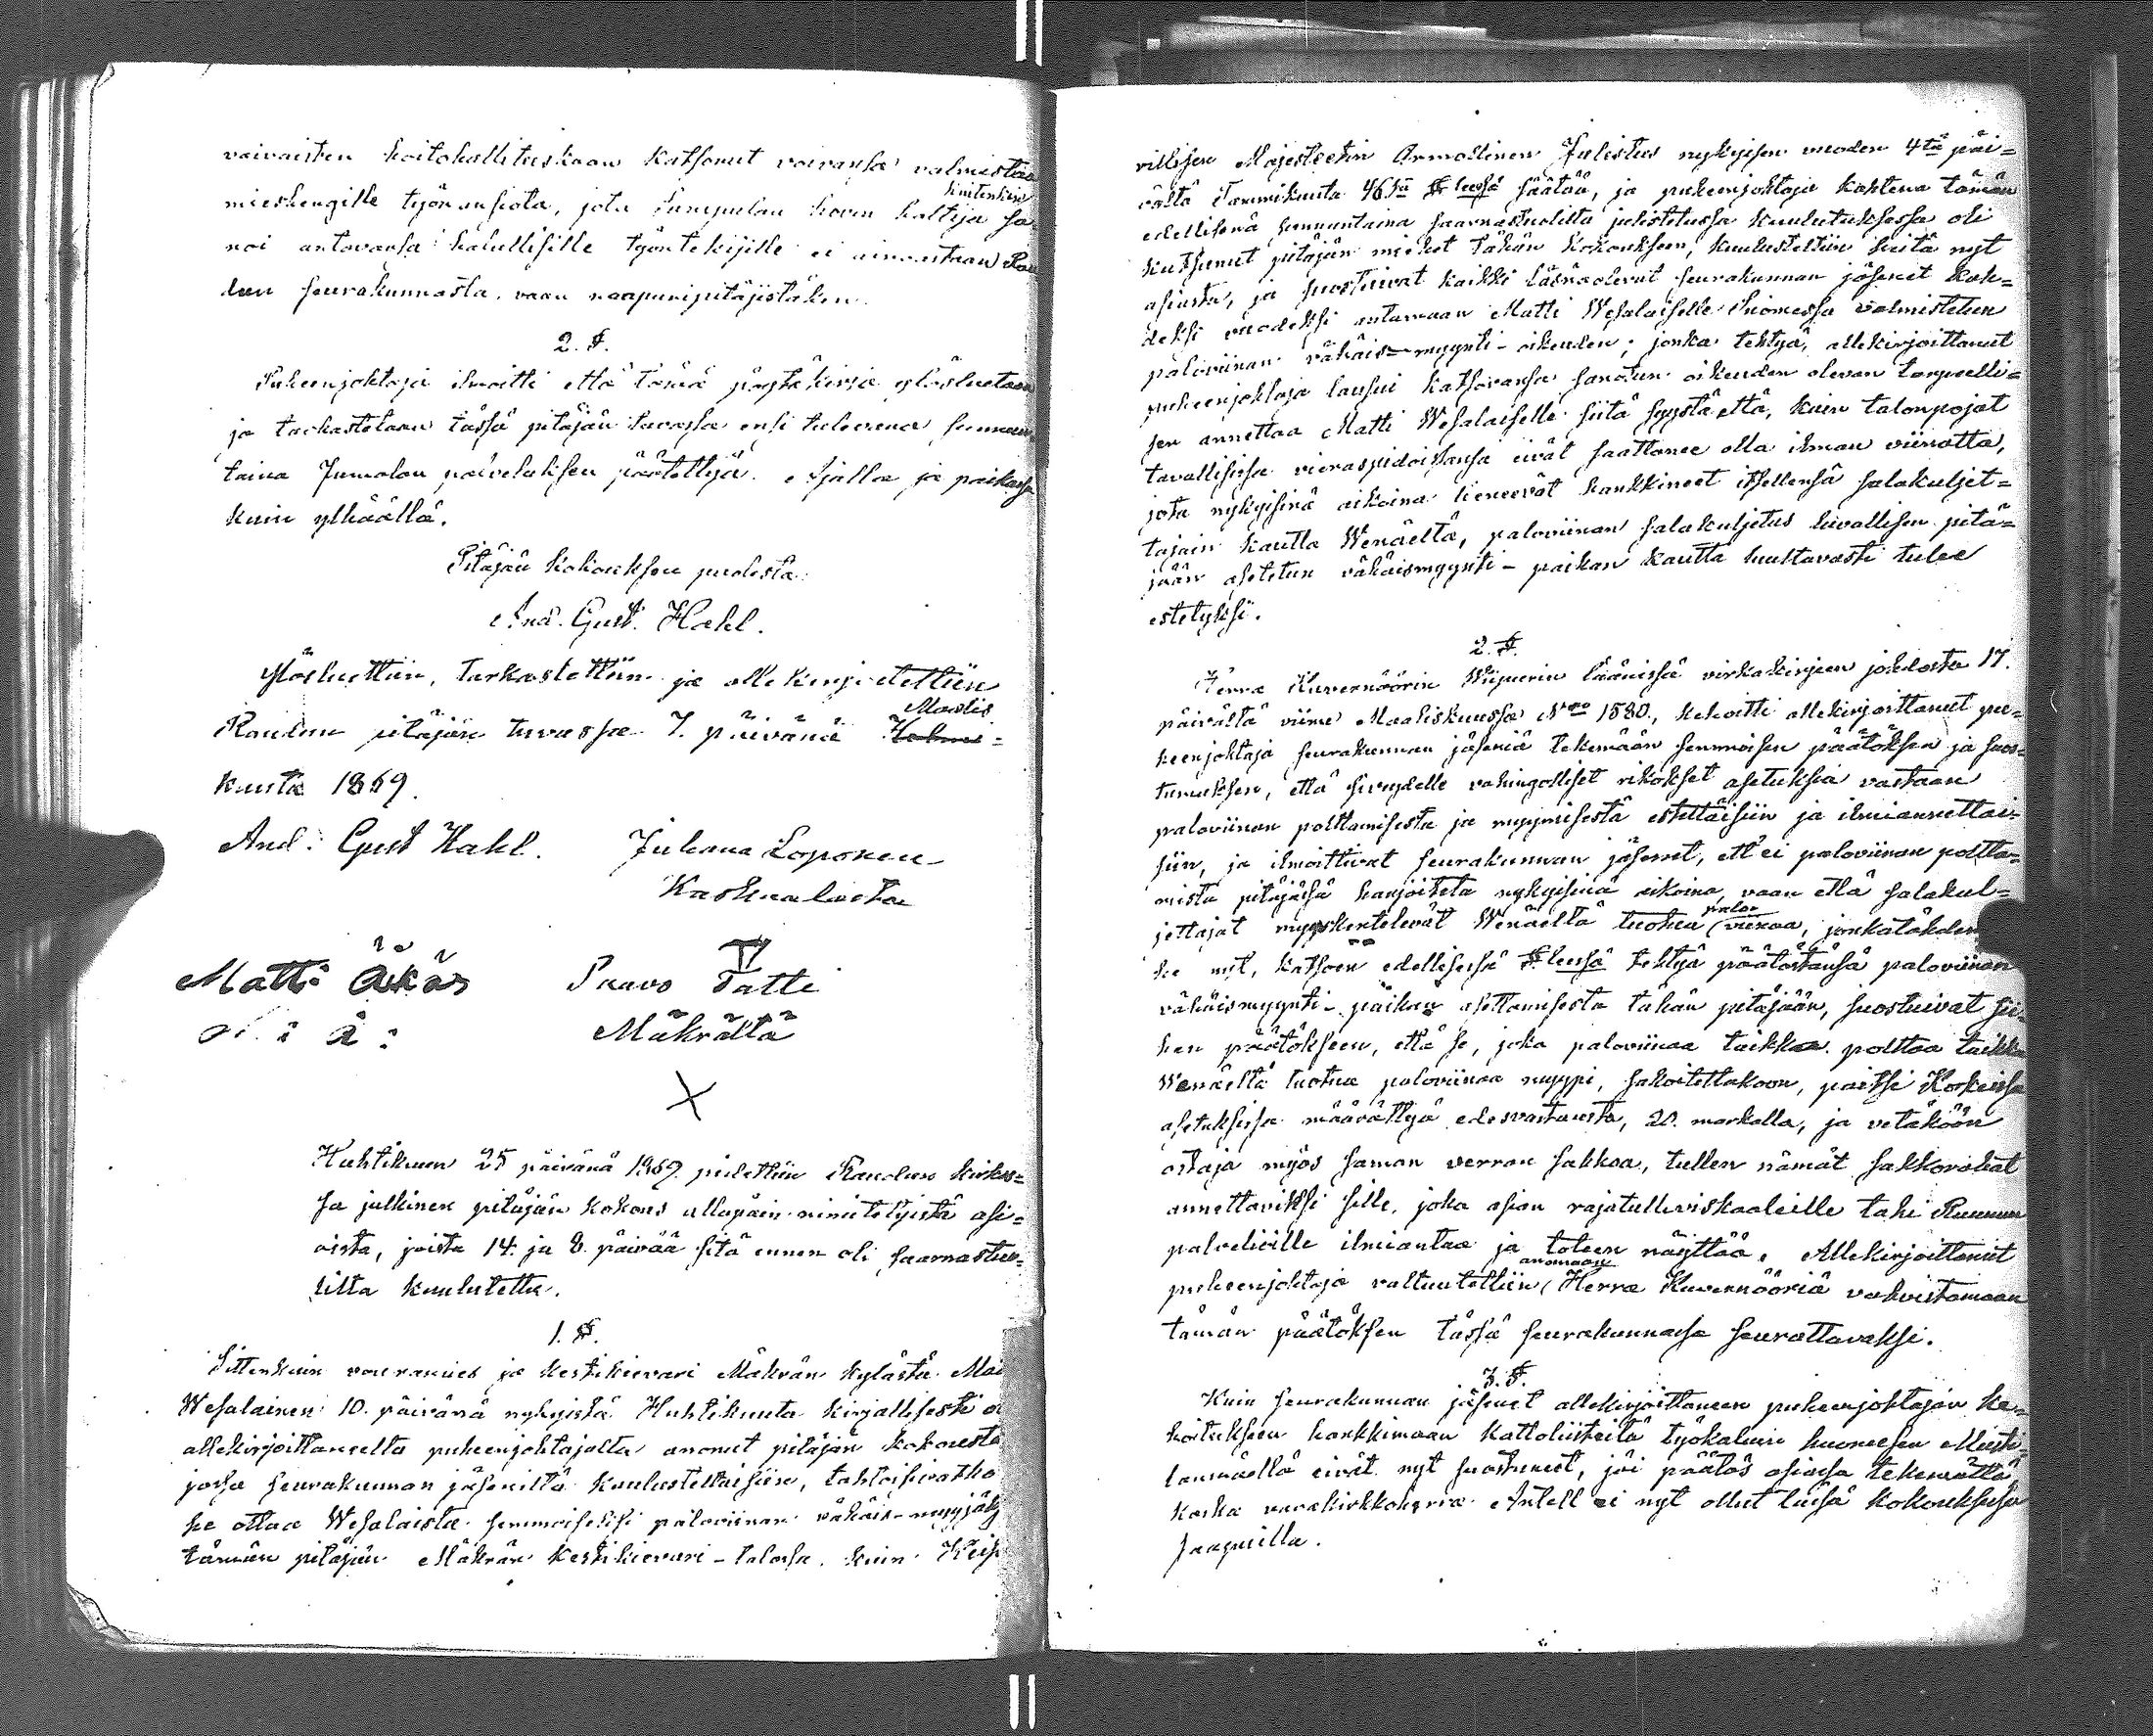 vaivaisten hoitohallituskaan katsonut voivansa valmistaa
kuitenkin
mieshengille työnansiota, jota Sumpulan hovin haltija sa
noi antavansa halullisille työntekijille ei ainoastaan Rau
dun seurakunnasta, vaan naapuripitäjistäkin.
2. §.
Puheenjohtaja ilmoitti että tämä pöytäkirja ylösluetaan
ja tarkastetaan tässä pitäjän tuvassa ensi tulevana sunnun
taina Jumalan palveluksen päätettyä. Ajalla ja paikassa
kuin ylhäällä.
Pitäjän kokouksen puolesta:
And. Gust. Hahl.
Ylösluettiin, tarkastettiin ja allekirjoitettiin
Maalis
Raudun pitäjän tuvassa 7. päivänä Helmi=
kuuta 1869.
And: Gust Hahl. Juhana Loponen
Kaskaalasta
Matti Äikäs Paavo Tatti
Mäkrältä
Huhtikuun 25 päivänä 1869 pidettiin Raudun kirkos=
sa julkinen pitäjän kokous allapäin nimitetyistä asi=
oista, joista 14. ja 8. päivää sitä ennen oli saarnastuo=
lilta kuulutettu.
1. §.
Sittenkuin vouramies ja kestikievari Mäkrän kylästä Mat
Wesalainen 10. päivänä nykyistä Huhtikuuta kirjallisesti o
allekirjoittaneelta puheenjohtajalta anonut pitäjän kokousta
jossa seurakunnan jäseniltä kuulusteltaisiin, tahtoisivatko
he ottaa Wesalaista semmoiseksi paloviinan vähäis-myyjäks
tämän pitäjän Mäkrän kestikievari-talossa, kuin Keis
rillisen Majesteetin Armollinen Julistus nykyisen vuoden 4tä päi=
vältä Tammikuuta 46ssa §:lussä säätää, ja puheenjohtaja kahtena tämän
edellisenä sunnuntaina saarnastuolilta julistetussa kuulutuksessa oli
kutsunut pitäjän miehet tähän kokoukseen, kuulusteltiin heitä nyt
asiasta, ja suostuivat kaikki läsnäolevat seurakunnan jäsenet kah=
deksi vuodeksi antamaan Matti Wesalaiselle Suomessa valmistetun
paloviinan vähäis-myynti-oikeuden; jonka tehtyä, allekirjoittanut
puheenjohtaja lausui katsovansa sanotun oikeuden olevan tarpeelli=
sen annettaa Matti Wesalaiselle siitä syystä että, kuin talonpojat
tavallisissa vieraspidoissansa eivät saattanee olla ilman viinatta,
jota nykyisinä aikoina lieneevät hankkineet itsellensä salakuljet=
tajain kautta Wenäeltä, paloviinan salakuljetus luvallisen pitä=
jään asetetun vähäismyynti-paikan kautta luultavasti tulee
estetyksi.
2. §.
Herra Kuvernöörin Wiipurin läänissä virkakirjeen johdosta 17.
päivältä viime Maaliskuussa Nro 1580., kehoitti allekirjoittanut pu=
heenjohtaja seurakunnan jäseniä tekemään semmoisen päätöksen ja suos=
tumuksen, että sivydelle vahingolliset rikokset asetuksia vastaan
paloviinan polttamisesta ja myymisestä estettäisiin ja ilmiannettai=
siin, ja ilmoittivat seurakunnan jäsenet, ett'ei paloviinan poltta=
mista pitäjässä harjoiteta nykyisinä aikoina, vaan että salakul=
palo
jettajat myyskentelevät Wenäeltä tuotua viinaa, jonkatähden
he nyt, katsoen edellisessä §:lussä tehtyä päätöstänsä paloviinan
vähäismyynti-paikan asettamisesta tähän pitäjään, suostuivat sii=
hen päätökseen, että se, joka paloviinaa taikka polttaa taikka
Wenäeltä tuotua paloviinaa myypi, sakoitettakoon, paitsi Korkeissa
asetuksissa määrättyä edesvastausta, 20. markalla, ja vetäköön
ostaja myös saman verran sakkoa, tullen nämät sakkorahat
annettaviksi sille, joka asian rajatulliviskaaleille tahi Ruunun
palvelioille ilmiantaa ja toteen näyttää. Allekirjoittanut
anomaan
puheenjohtaja valtuutettiin Herra Kuvernööriä vahvistamaan
tämän päätöksen tässä seurakunnassa seurattavaksi.
3. §.
Kuin seurakunnan jäsenet allekirjoittaneen puheenjohtajan ke=
hoitukseen hankkimaan kattoluisteitä työkaluin huoneesen Musti=
lanmäellä eivät nyt suostuneet, jäi päätös asiassa tekemättä,
koska varakirkkoherra Antell ei nyt ollut läisä kokouksessa
saapuilla.